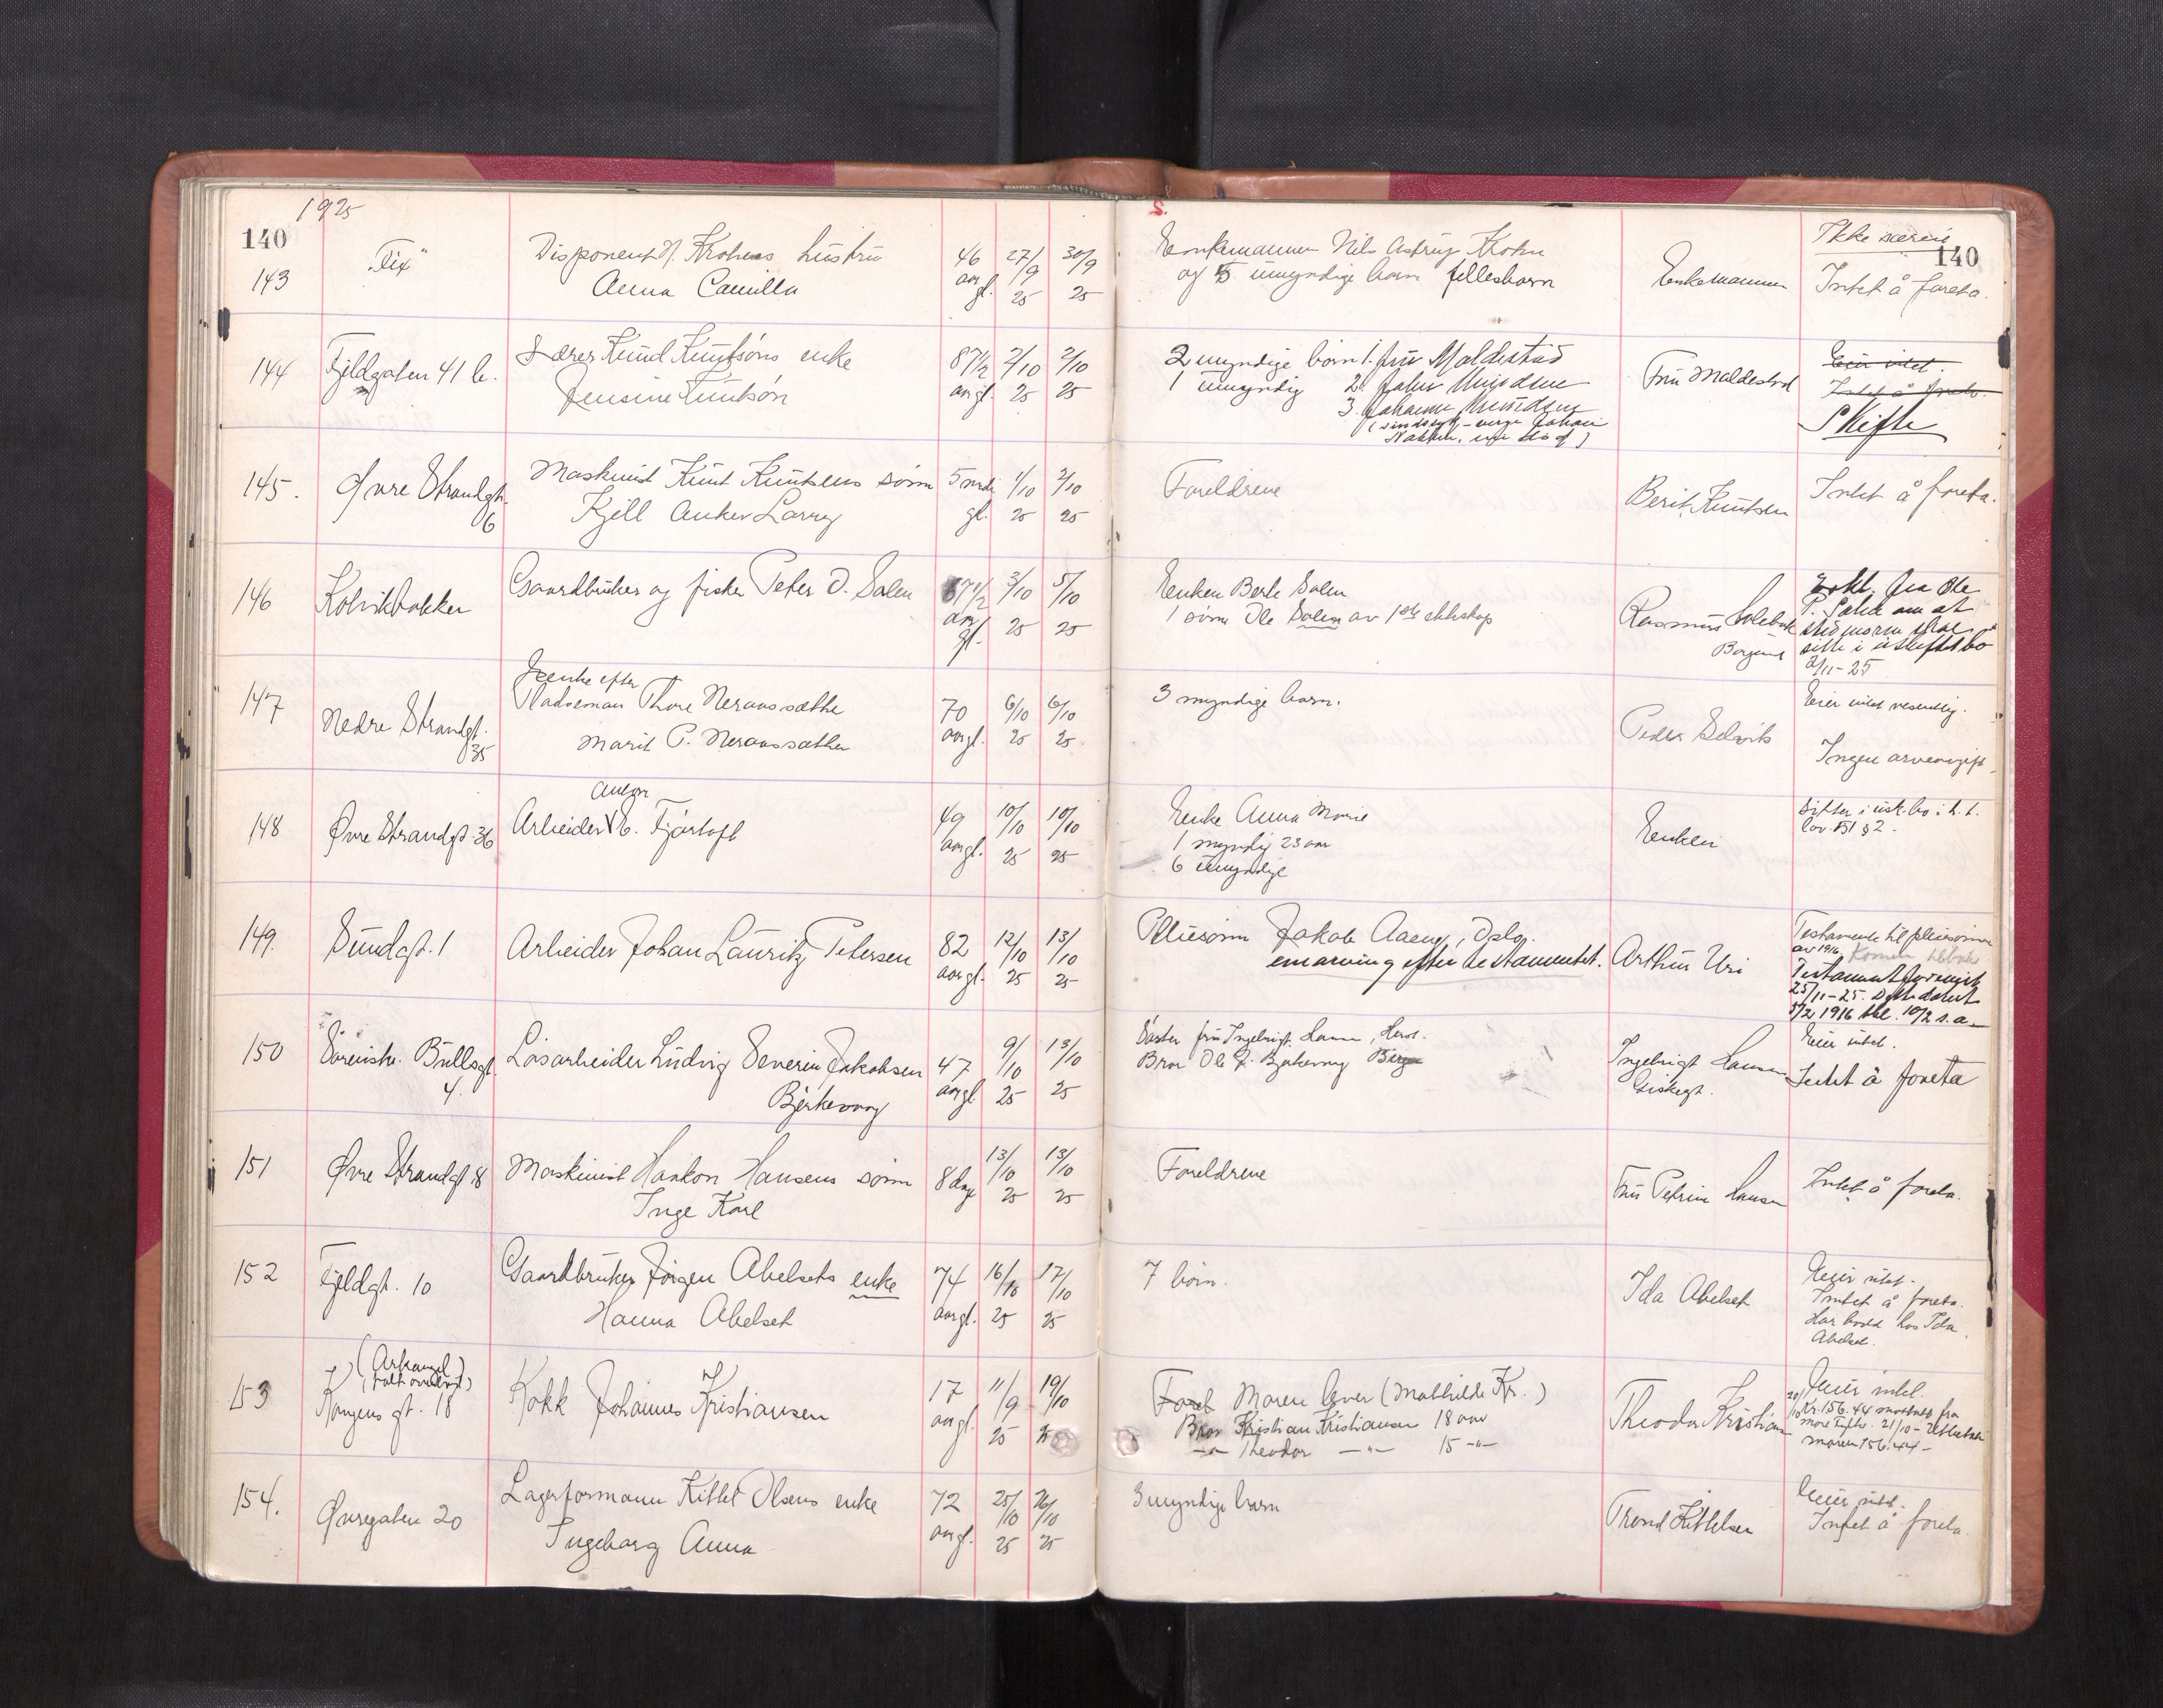 1925
140
140
143
"Fix"
Disponent N. Krohns hustru
Anna Camilla
46 aar gl.
27/9 25
30/9 25
Enkemannen Nils Astrup Krohn
og 5 umyndige barn fellesbarn
Enkemannen
Ikke særeie
Intet å foreta.
144
Fjeldgaten 41 b.
Lærer Knud Knutsóns enke
Jensine Knutsón
87 1/2 aar gl.
2/10 25
2/10 25
2 myndige børn 1. fru Maldestad
1 umyndig 2.
3. Johanne
Fru Maldestad
Eier intet.
Intet å foreta.
Skifte
145.
Øvre Strandgt.
6
Maskinist Knut Knutsens sønn
Kjell Anker Larry
5 mdr. gl.
1/10 25
2/10 25
Foreldrene
Berit Knutsen
Intet å foreta.
146
Kolvikbakken
Gaardbruker og fisker Peter O. Salen
67 1/2 aar gl.
3/10 25
5/10 25
Enken Berte Salen
1 sønn Ole Salen av 1ste ekteskap
Rasmus
Borgund
Erkl. fra Ole
P. Salen om at
stedmoren skal
sitte i uskiftet bo
2/11-25
147
Nedre Strandgt.
35
enke efter
Pladseman Thore Neraussæthe
Marit P. Neraussæther
70 aar gl.
6/10 25
6/10 25
3 myndige barn.
Peder Selvik
Eier intet vesentlig.
Ingen arveavgift
148
Øvre Strandgt. 36
Anton
Arbeider E. Fjørtoft
49 aar gl.
10/10 25
10/10 25
Enke Anna Marie
1 myndig 23 aar
6 umyndige
Enken
Sitter i usk. bo i h. t.
lov § 2.
149.
Sundgt. 1
Arbeider Johan Lauritz Petersen
82 aar gl.
12/10 25
13/10 25
Pleiesønn Jakob Aaeng, Oslo.
enearving efter testamentet.
Arthur Uri
Testamente til pleiesønnen
av 1916. Kommer tilbake
Testament
25/11-25. Dette datert
5/2 1916 10/2 s.a.
150
Sørenskr. Bullsgt.
4.
Løsarbeider Ludvig Severin Jakobsen
Bjerkevoag
47 aar gl.
9/10 25
13/10 25
Søster fru Ingebrigt Hansen, Her.
Bror Ole J. Bjerkevoag
Ingebrigt Hansen
Giskegt.
Eier intet.
Intet å foreta
151
Øvre Strandgt 8
Maskinist Haakon Hansens sønn
Inge Karl
8 dage
13/10 25
13/10 25
Foreldrene
Fru Petrine Hansen
Intet å foreta.
152
Fjeldgt. 10
Gaardbruker Jørgen Abelsets enke
Hanna Abelset
74 aar gl.
16/10 25
17/10 25
7 børn.
Ida Abelset
Eier intet.
Intet å foreta.
Har bodd hos Ida
Abelset.
153
(Arkangel)
(falt overbord)
Kongens gt. 18
Kokk Johannes Kristiansen
17 aar gl.
11/9 25
19/10 25
Moren lever (Mathilde Kr.)
Bror Kristian Kristiansen 18 aar
-"- Theodor -"- 15 -"-
Theodor Kristiansen
Eier intet.
20/10 Kr. 156.44 mottatt fra
Møre Fylke. 21/10- Utbetalt
moren 156.44-
154.
Øvregaten 20
Lagerformann Kittel Olsens enke
Ingeborg Anna
72 aar gl.
25/10 25
26/10 25
3 myndige barn
Trond Kittelsen
Eier intet.
Intet å foreta.